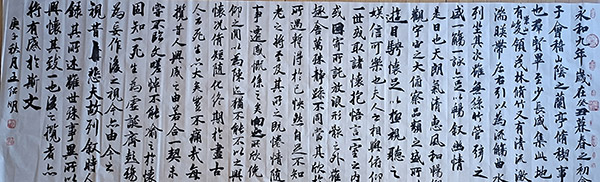 永和九年歲在癸丑暮春之初會
于會稽山陰之蘭亭脩禊事
也群賢畢至少長咸集此地
有崇山峻領茂林脩竹又有清流激
湍暎帶左右引以為流觴曲水
列坐其次雖無絲竹管弦之
盛一觴一詠亦足以暢敘幽情
是日也天朗氣清惠風和暢仰
觀宇宙之大俯察品類之盛所以
遊目騁懷足以極視聽之
娛信可樂也夫人之相與俯仰
一世或取諸懷抱悟言一室之內
或因寄所託放浪形骸之外雖
趣舍萬殊靜躁不同當其欣於
所遇暫得於己快然自足不知
老之將至及其所之既惓情隨
事遷感慨係之矣向之所欣俛
仰之間以為陳迹猶不能不以之興
懷況脩短隨化終期於盡古
人云死生亦大矣豈不痛哉每
攬昔人興感之由若合一契未
嘗不臨文嗟悼不能喻之於懷
固知死生為虛誕齊彭殤
為妄作後之視今亦由今之
視昔悲夫故列敘時人
錄其所述雖世殊事異所以
興懷其致一也後之攬者亦
將有感於斯文
庚子秋月王明